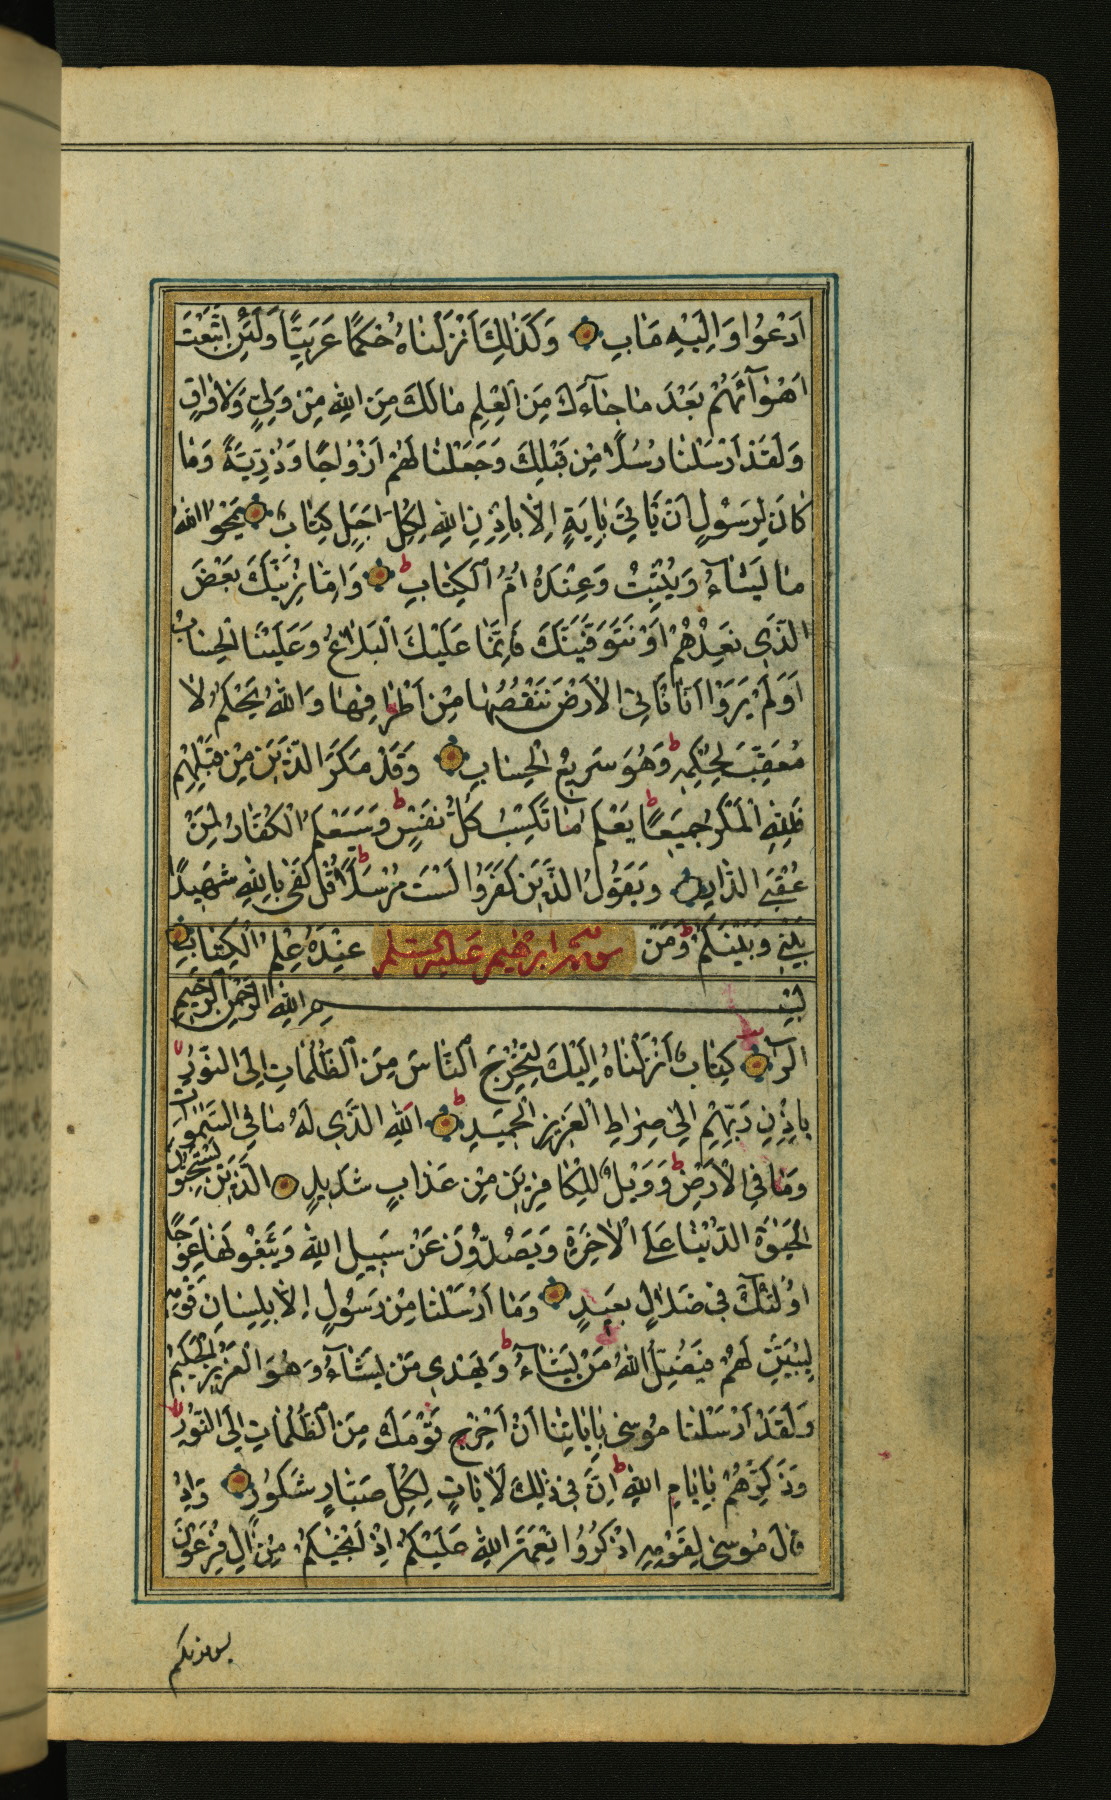 اَدْعُوا وَاِلَيْهِ مَاٰبِ وَكَذٰلِكَ اَنْزَلْنَاهُ حُكْمًا عَرَبِيًّا وَلَئِنِ اتَّبَعْتَ
اَهْوَآئَهُمْ بَعْدَ مَا جَآءَكَ مِنَ الْعِلْمِ مَالَكَ مِنَ اللهِ مِنْ وَلِيٍّ وَلَا وَاقٍ
وَلَقَدْ اَرْسَلْنَا رُسُلًا مِنْ قَبْلِكَ وَجَعَلْنَا لَهُمْ اَزْوَاجًا وَذُرِّيَّةً وَمَا
كَانَ لِرَسُولٍ اَنْ يَاْتِيَ بِاٰيَةٍ اِلَّا بِاِذْنِ اللهِ لِكُلِّ اَجَلٍ كِتَابٌ يَمْحُوا اللهُ
مَا يَشَآءُ وَيُثْبِتُ وَعِنْدَهُ اُمُّ الْكِتَابِ وَاِمَّا نُرِيَنَّكَ بَعْضَ
الَّذِي نَعِدُهُمْ اَوْ نَتَوَفَّيَنَّكَ فَاِنَّمَا عَلَيْكَ الْبَلَاغُ وَعَلَيْنَا الْحِسَابُ
اَوَلَمْ يَرَوْا اَنَّا نَاْتِي الْاَرْضَ نَنْقُصُهَا مِنْ اَطْرَافِهَا وَاللهُ يَحْكُمُ لَا
مُعَقِّبَ لِحُكْمِهِ وَهُوَ سَرِيعُ الْحِسَابِ وَقَدْ مَكَرَ الَّذِينَ مِنْ قَبْلِهِمْ
فَلِلّهِ الْمَكْرُ جَمِيعًا يَعْلَمُ مَا تَكْسِبُ كُلُّ نَفْسٍ وَسَيَعْلَمُ الْكُفَّارُ لِمَنْ
عُقْبَى الدَّارِ وَيَقُولُ الَّذِينَ كَفَرُوا لَسْتَ مُرْسَلًا قُلْ كَفٰى بِاللهِ شَهِيدًا
بَيْنِي وَبَيْنَكُمْ وَمَنْ سورة ابرهيم عليه السلم عِنْدَهُ عِلْمُ الْكِتَابِ
بِسْمِ اللهِ الرَّحْمٰنِ الرَّحِيمِ
الٓرٰ كِتَابٌ اَنْزَلْنَاهُ اِلَيْكَ لِتُخْرِجَ النَّاسَ مِنَ الظُّلُمَاتِ اِلَى النُّورِ
بِاِذْنِ رَبِّهِمْ اِلٰى صِرَاطِ الْعَزِيزِ الْحَمِيدِ اَللهِ الَّذِي لَهُ مَا فِي السَّمٰوَاتِ
وَمَا فِي الْاَرْضِ وَوَيْلٌ لِلْكَافِرِينَ مِنْ عَذَابٍ شَدِيدٍ الَّذِينَ يَسْتَحِبُّونَ
الْحَيٰوةَ الدُّنْيَا عَلَى الْاٰخِرَةِ وَيَصُدُّونَ عَنْ سَبِيلِ اللهِ وَيَبْغُونَهَا عِوَجًا
اُولٰئِكَ فِي ضَلَالٍ بَعِيدٍ وَمَا اَرْسَلْنَا مِنْ رَسُولٍ اِلَّا بِلِسَانِ قَوْمِهِ
لِيُبَيِّنَ لَهُمْ فَيُضِلُّ اللهُ مَنْ يَشَآءُ وَيَهْدِي مَنْ يَشَآءُ وَهُوَ الْعَزِيزُ الْحَكِيمُ
وَلَقَدْ اَرْسَلْنَا مُوسٰى بِاٰيَاتِنَا اَنْ اَخْرِجْ قَوْمَكَ مِنَ الظُّلُمَاتِ اِلَى النُّورِ
وَذَكِّرْهُمْ بِاَيَّامِ اللهِ اِنَّ فِي ذٰلِكَ لَاٰيَاتٍ لِكُلِّ صَبَّارٍ شَكُورٍ وَاِذْ
قَالَ مُوسٰى لِقَوْمِهِ اذْكُرُوا نِعْمَةَ اللهِ عَلَيْكُمْ اِذْ اَنْجٰيكُمْ مِنْ اٰلِ فِرْعَوْنَ
يسومونكم